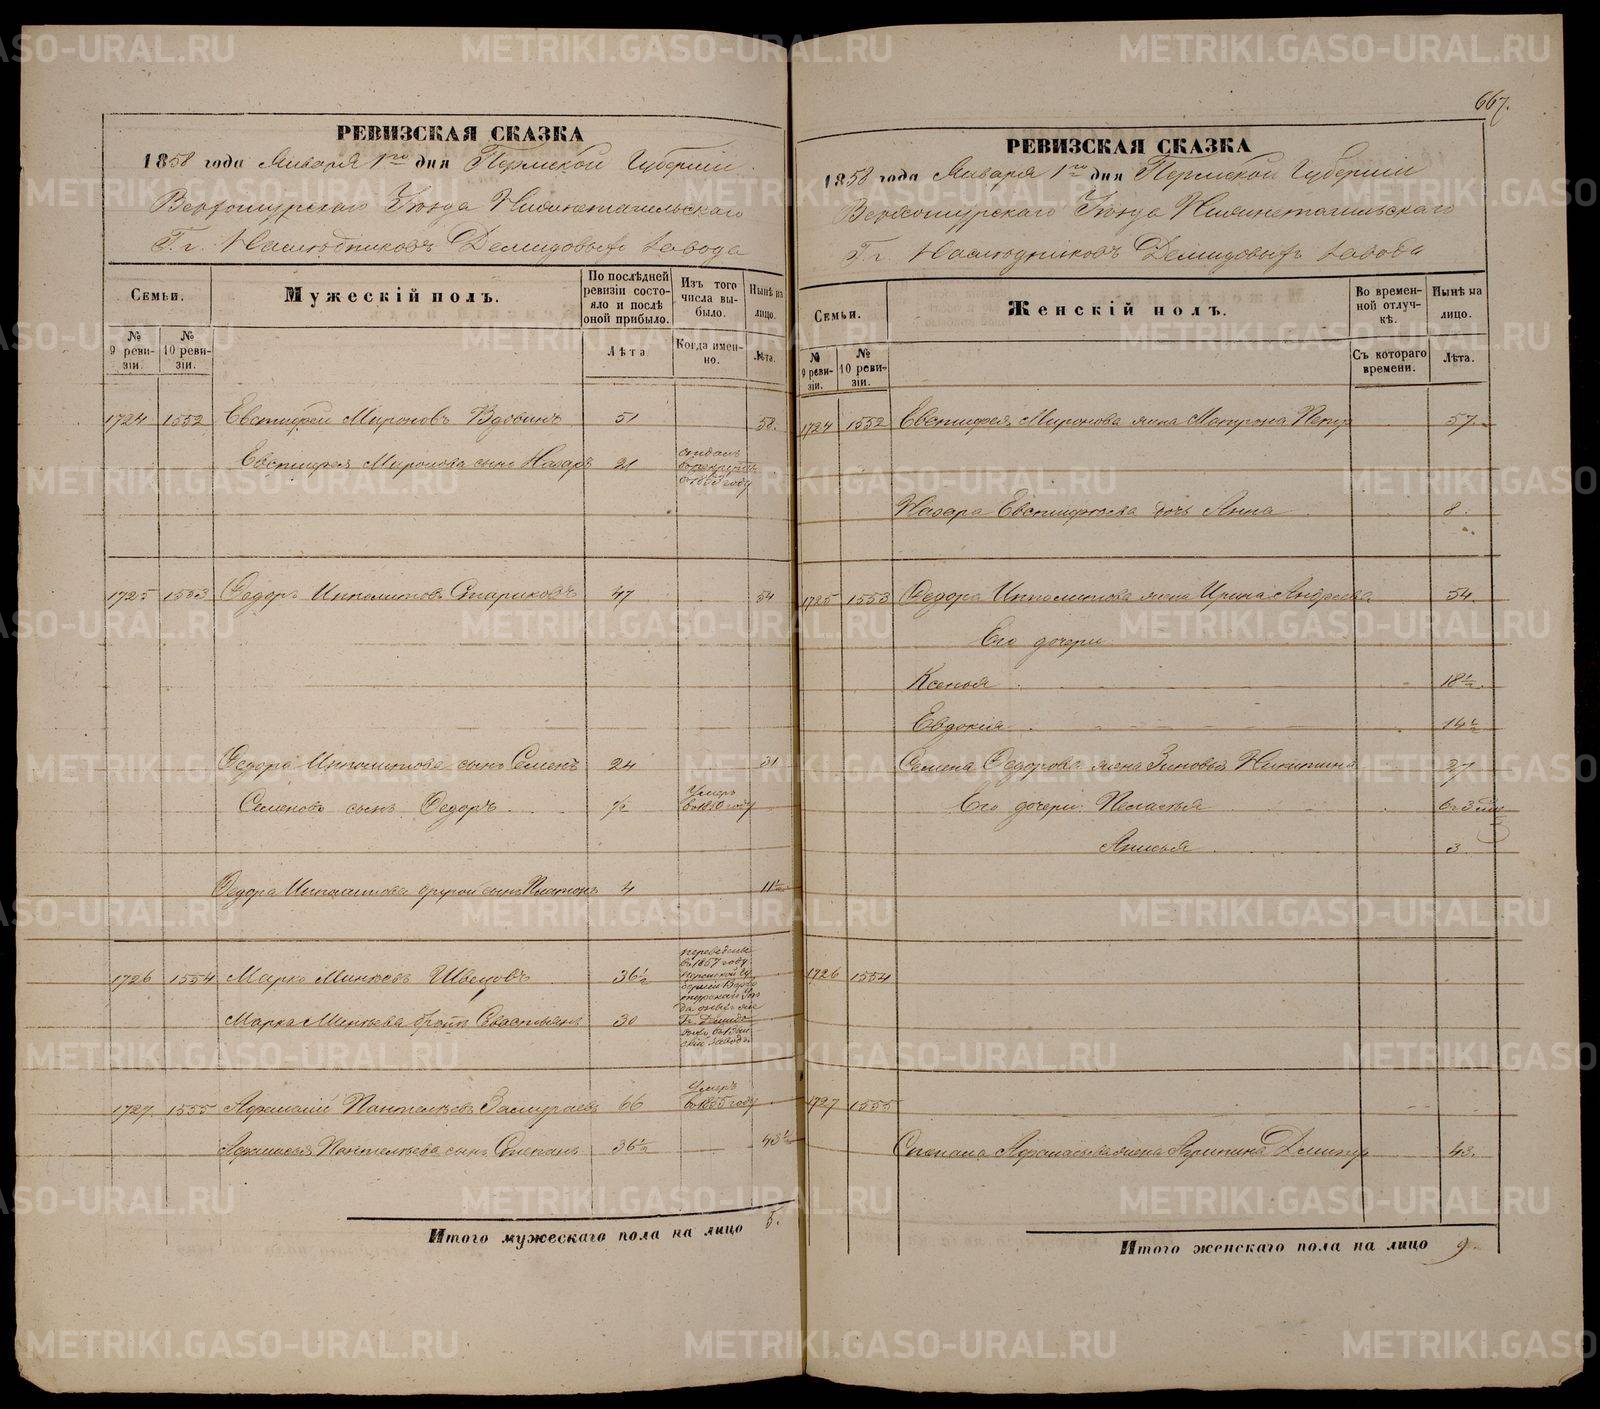 667.
РЕВИЗСКАЯ СКАЗКА
1858 года Января 1го дня Пермской Губернiи
Верхотурскаго Уѣзда Нижнетагильскаго
Г.г. Наслѣдниковъ Демидовыхъ завода
Семьи.
№ 9 ревизiи.
№ 10 ревизiи.
Мужескiй полъ.
По послѣдней ревизiи состояло и послѣ оной прибыло.
Лѣта
Изъ того числа выбыло.
Когда именно.
Нынѣ на лицо.
Лѣта.
1724 1552 Евстифей Мироновъ Вдовинъ 51 58.
Евстифея Миронова сынъ Назаръ 21 отданъ в рекруты в 1855 году
1725 1553 Федоръ Ипполитовъ Стариковъ 47 54
Федора Ипполитова сынъ Семенъ 24 31
Семеновъ сынъ Федоръ ½ Умеръ въ 1850 году
Федора Ипполитова другой сынъ Платонъ 4 11½
1726 1554 Марко Минѣевъ Швецовъ 36½
переведены въ 1857 году Пермской Губернiи Верхотурскаго Уѣзда
Марка Минѣева братъ Севастьянъ 30
1727. 1555 Афанасiй Пантелѣевъ 66 Умеръ въ 1855 году
Афанасья Пантелѣева сынъ Степанъ 36½ 43½
Итого мужескаго пола на лицо 5.
РЕВИЗСКАЯ СКАЗКА
1858 года Января 1го дня Пермской Губернiи
Верхотурскаго Уѣзда Нижнетагильскаго
Г.г. Наслѣдниковъ Демидовыхъ завода
Семьи.
№ 9 ревизiи.
№ 10 ревизiи.
Женскiй полъ.
Во временной отлучкѣ.
Съ котораго времени.
Нынѣ на лицо.
Лѣта.
1724 1552 Евстифея Миронова жена Матрона Петр 57.
Назара Евстифѣева дочь Анна 8.
1725 1553 Федора Ипполитова жена Ирина Андреева 54.
Его дочери
Ксенья 18½.
Евдокия 14½
Семена Федорова жена Зиновья Никитина 27
Его дочери: Пелагья
Анисья 3.
1726 1554
1727 1555
Степана Афанасьева жена Агрипина Дмитр 43.
Итого женскаго пола на лицо 9.
METRIKI.GASO-URAL.RU